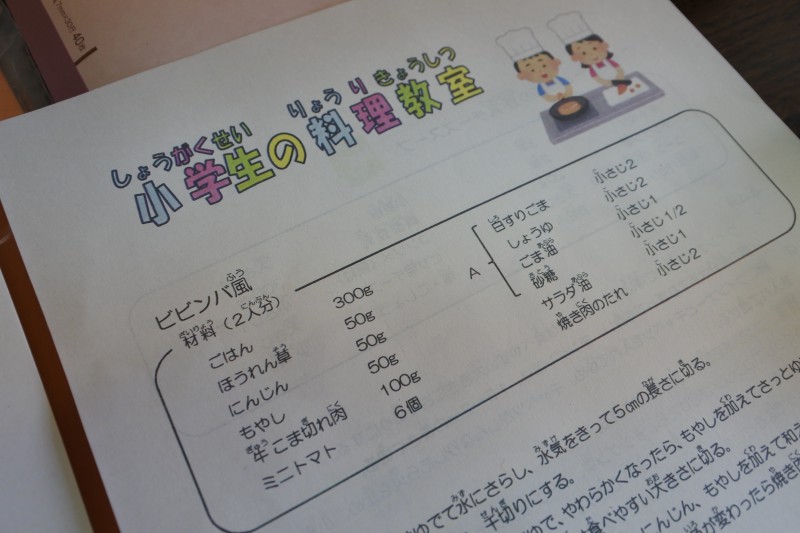 7mm×30行 40枚
しょうがくせい りょうり きょうしつ
小学生の料理教室
ビビンバ風
材料（2人分）
ごはん 300g
ほうれん草 50g
にんじん 50g
もやし 50g
牛こま切れ肉 100g
ミニトマト 6個
A
白すりごま 小さじ2
しょうゆ 小さじ2
ごま油 小さじ1
砂糖 小さじ1/2
サラダ油 小さじ1
焼き肉のたれ 小さじ2
ゆでて水にさらし、水気をきって5cmの長さに切る。
千切りにする。
ゆで、やわらかくなったら、もやしを加えてさっとゆ
食べやすい大きさに切る。
にんじん、もやしを加えて和
が変わったら焼き肉